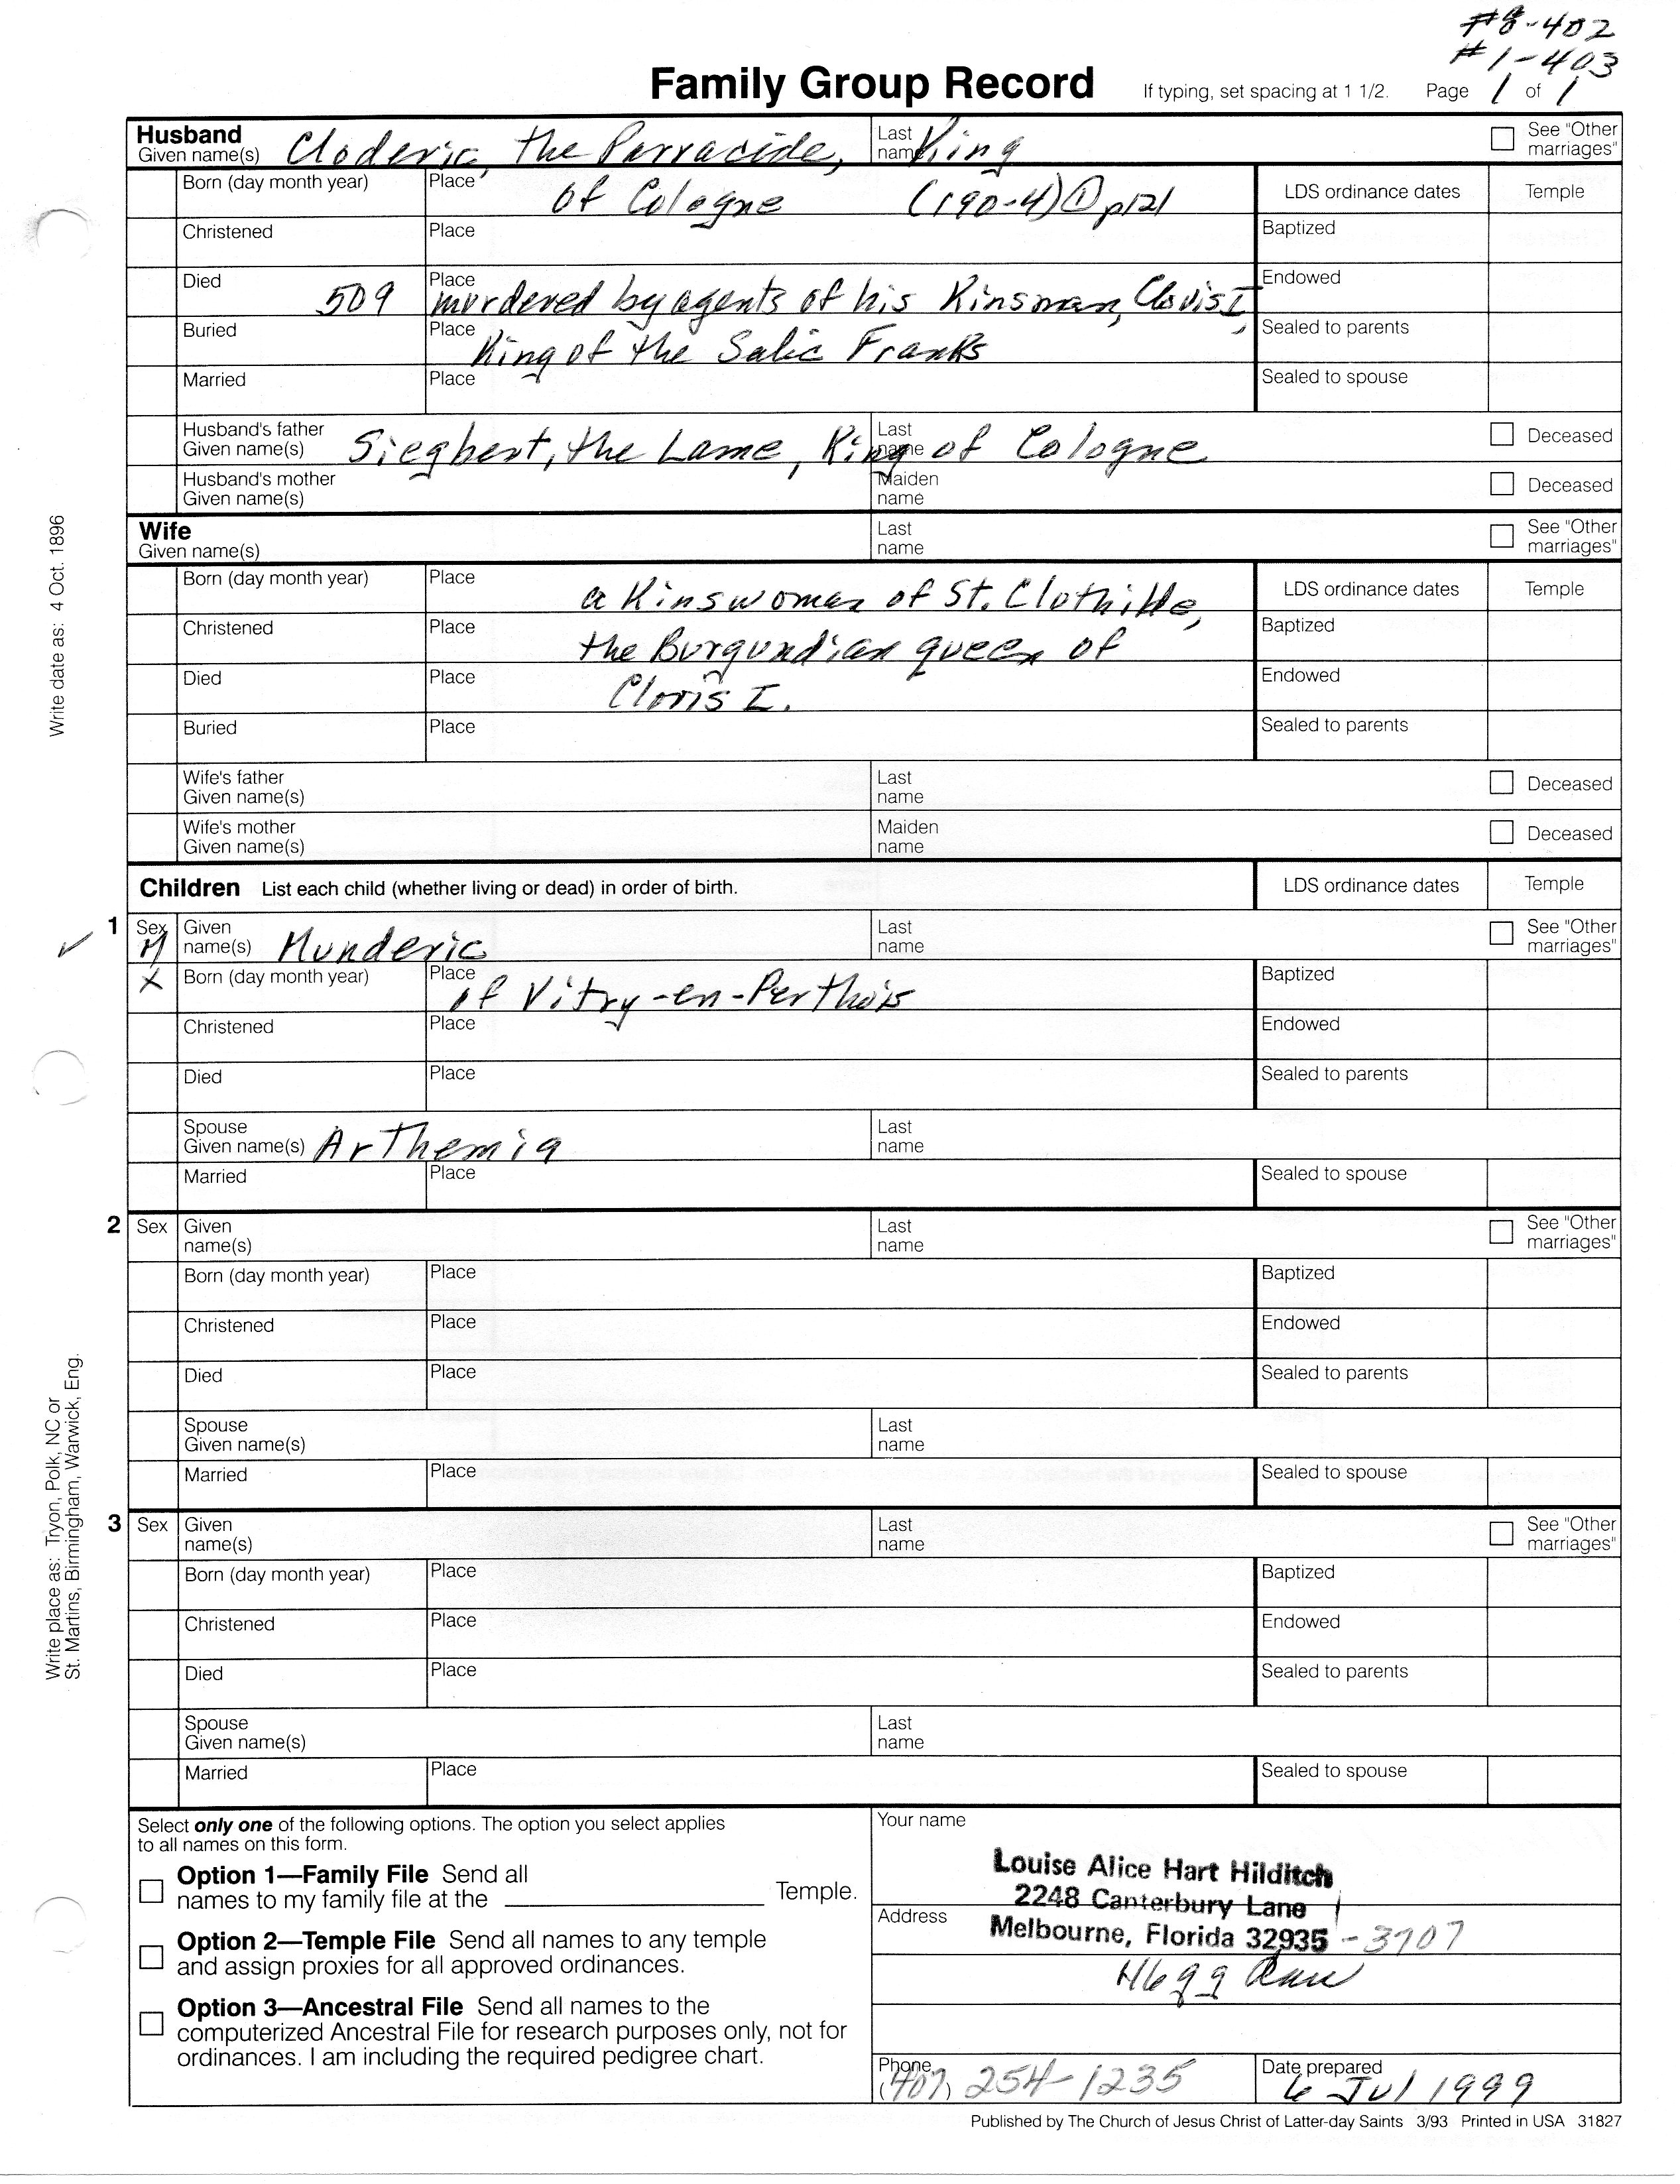 #8-402
#1-403
Family Group Record If typing, set spacing at 1 1/2. Page 1 of 1
Husband
Given name(s) Cloderic, the Parracide, Last name King See "Other marriages"
Born (day month year) Place of Cologne (190-4) ① p121 LDS ordinance dates Temple
Christened Place Baptized
Died 509 Place murdered by agents of his Kinsman, Clovis I, Endowed
Buried Place King of the Salic Franks Sealed to parents
Married Place Sealed to spouse
Husband's father Given name(s) Siegbert, the Lame, King of Cologne Last name Deceased
Husband's mother Given name(s) Maiden name Deceased
Wife
Given name(s) Last name See "Other marriages"
Born (day month year) Place a Kinswoman of St. Clothilde, LDS ordinance dates Temple
Christened Place the Burgundian queen of Baptized
Died Place Clovis I. Endowed
Buried Place Sealed to parents
Wife's father Given name(s) Last name Deceased
Wife's mother Given name(s) Maiden name Deceased
Children List each child (whether living or dead) in order of birth. LDS ordinance dates Temple
1 Sex M Given name(s) Munderic Last name See "Other marriages"
X Born (day month year) Place of Vitry-en-Perthois Baptized
Christened Place Endowed
Died Place Sealed to parents
Spouse Given name(s) Arthemia Last name
Married Place Sealed to spouse
2 Sex Given name(s) Last name See "Other marriages"
Born (day month year) Place Baptized
Christened Place Endowed
Died Place Sealed to parents
Spouse Given name(s) Last name
Married Place Sealed to spouse
3 Sex Given name(s) Last name See "Other marriages"
Born (day month year) Place Baptized
Christened Place Endowed
Died Place Sealed to parents
Spouse Given name(s) Last name
Married Place Sealed to spouse
Write date as: 4 Oct. 1896
Write place as: Tryon, Polk, NC or
St. Martins, Birmingham, Warwick, Eng.
Select only one of the following options. The option you select applies
to all names on this form.
Option 1—Family File Send all
names to my family file at the Temple.
Option 2—Temple File Send all names to any temple
and assign proxies for all approved ordinances.
Option 3—Ancestral File Send all names to the
computerized Ancestral File for research purposes only, not for
ordinances. I am including the required pedigree chart.
Your name
Louise Alice Hart Hilditch
2248 Canterbury Lane
Address
Melbourne, Florida 32935 -3707
Phone (407) 254-1235
Date prepared 6 Jul 1999
Published by The Church of Jesus Christ of Latter-day Saints 3/93 Printed in USA 31827